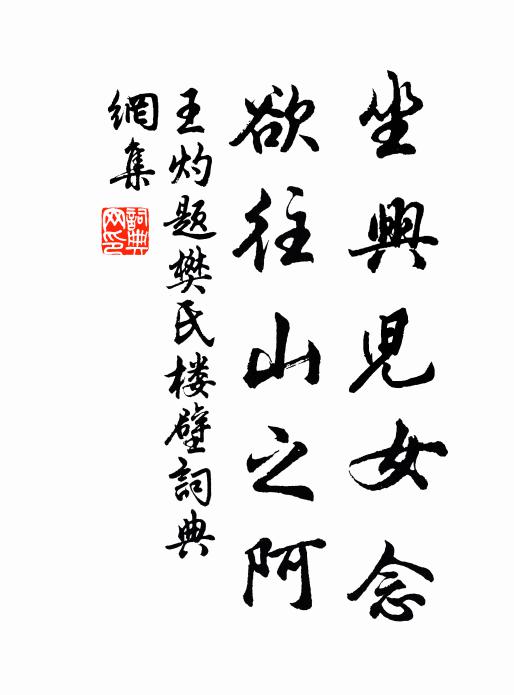 坐興兒女念
欲往山之阿
王灼题樊氏楼壁詞典
網集
詞典网印